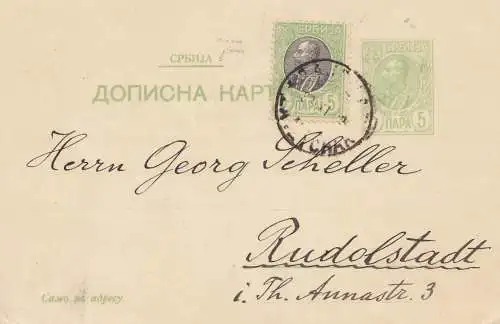 СРБИЈА
СРБИЈА
СРБИЈА
ДОПИСНА КАРТ
5
ПАРА 5
ПАРА
Herrn Georg Scheller
Rudolstadt
i. Th. Annastr. 3
Само за адресу